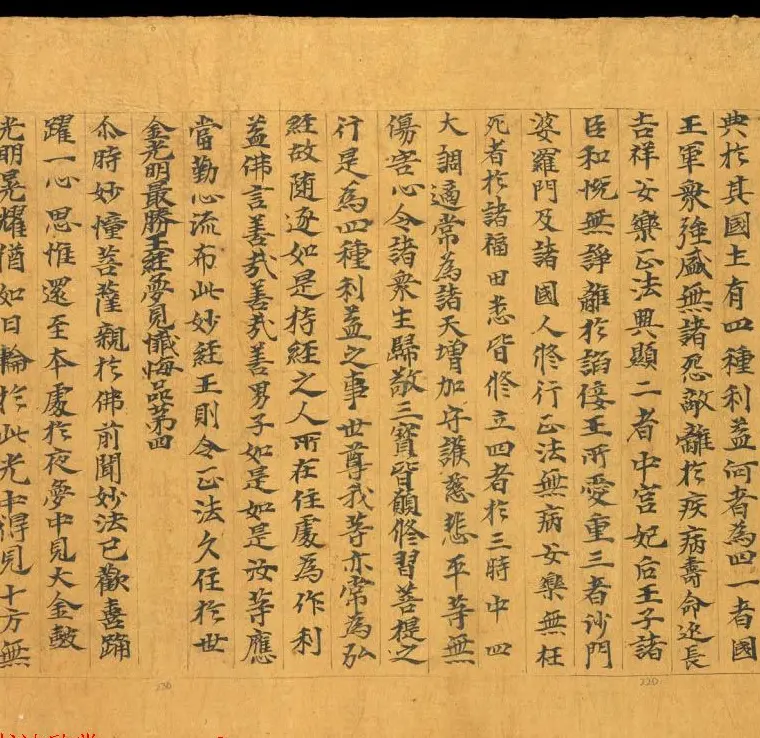 典於其國土有四種利益何者為四一者國
王軍衆強盛無諸怨敵離於疾病壽命延長
吉祥安樂正法興顯二者中宮妃后王子諸
臣和悅無諍離於諂佞王所愛重三者沙門
婆羅門及諸國人修行正法無病安樂無枉
死者於諸福田悉皆修立四者於三時中四
大調適常為諸天增加守護慈悲平等無
傷害心令諸衆生歸敬三寶皆願修習菩提之
行是為四種利益之事世尊我等亦常為弘
經故隨逐如是持經之人所在住處為作利
益佛言善哉善哉善男子如是如是汝等應
當勤心流布此妙經王則令正法久住於世
金光明最勝王經夢見懺悔品第四
尒時妙幢菩薩親於佛前聞妙法已歡喜踊
躍一心思惟還至本處於夜夢中見大金鼓
光明晃耀猶如日輪於此光中得見十方無
220